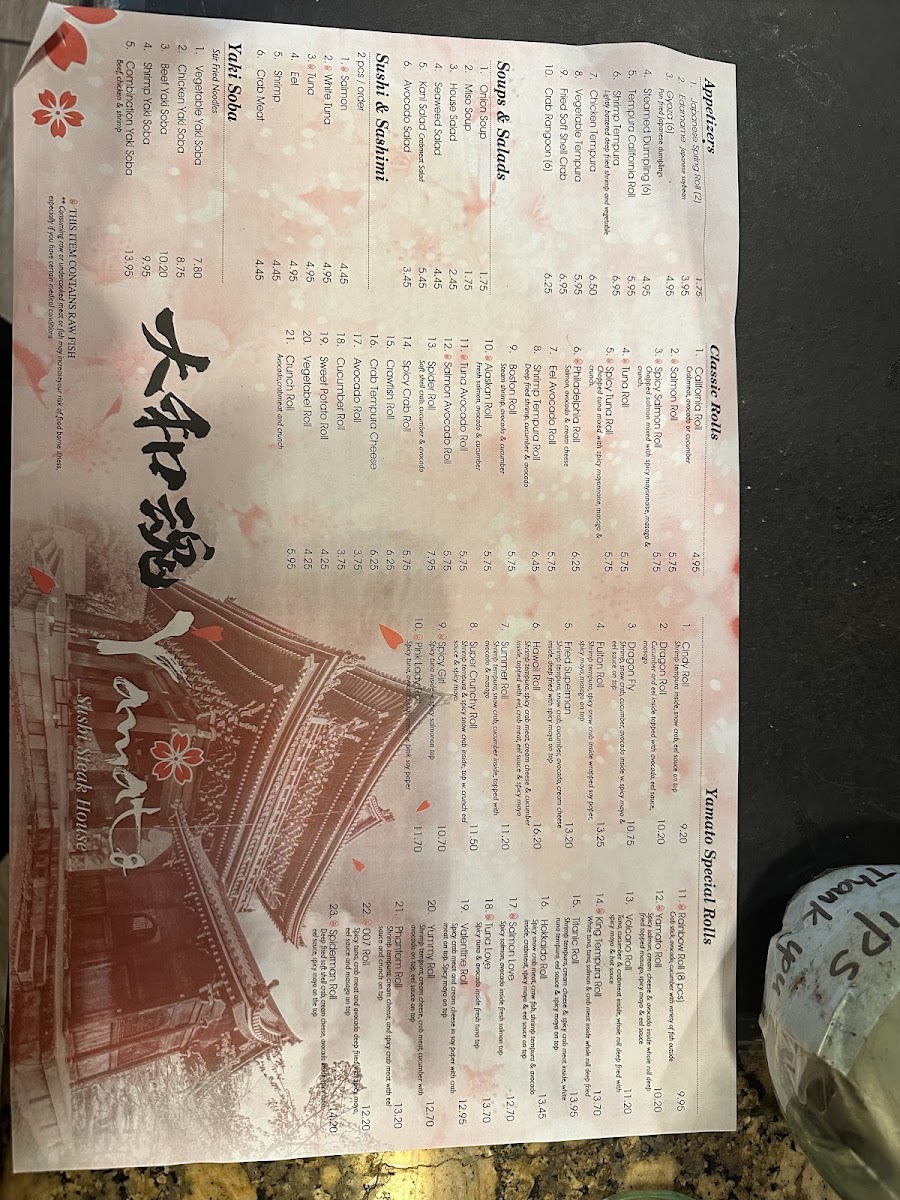 Appetizers
1. Japanese Spring Roll (2) 1.75
2. Edamame Japanese soybean 3.95
3. Gyoza (6) 4.95
Pan fried Japanese dumplings
4. Steamed Dumpling (6) 4.95
5. Tempura California Roll 5.95
6. Shrimp Tempura 6.95
Lightly battered deep fried shrimp and vegetable
7. Chicken Tempura 6.50
8. Vegetable Tempura 5.95
9. Fried Soft Shell Crab 6.95
10. Crab Rangoon (6) 6.25
Soups & Salads
1. Onion Soup 1.75
2. Miso Soup 1.75
3. House Salad 2.45
4. Seaweed Salad 4.45
5. Kani Salad Crabmeat Salad 5.45
6. Avocado Salad 3.45
Sushi & Sashimi
2 pcs / order
1. Salmon 4.45
2. White Tuna 4.95
3. Tuna 4.95
4. Eel 4.95
5. Shrimp 4.45
6. Crab Meat 4.45
Yaki Soba
Stir Fried Noodles
1. Vegetable Yaki Soba 7.80
2. Chicken Yaki Soba 8.75
3. Beef Yaki Soba 10.20
4. Shrimp Yaki Soba 9.95
5. Combination Yaki Soba 13.95
Beef, chicken & shrimp
THIS ITEM CONTAINS RAW FISH
** Consuming raw or undercooked meat or fish may increase your risk of food borne illness,
especially if you have certain medical conditions
Classic Rolls
1. California Roll 4.95
Crabmeat, avocado or cucumber
2. Salmon Roll 5.75
3. Spicy Salmon Roll 5.75
Chopped salmon mixed with spicy mayonnaise, masago &
crunch.
4. Tuna Roll 5.75
5. Spicy Tuna Roll 5.75
Chopped tuna mixed with spicy mayonnaise, masago &
crunch.
6. Philadelphia Roll 6.25
Salmon, avocado & cream cheese
7. Eel Avocado Roll 5.75
8. Shrimp Tempura Roll 6.45
Deep fried shrimp, cucumber & avocado
9. Boston Roll 5.75
Steam shrimp, avocado & cucumber
10. Alaskan Roll 5.75
Fresh salmon, avocado & cucumber
11. Tuna Avocado Roll 5.75
12. Salmon Avocado Roll 5.75
13. Spider Roll 7.95
Soft shell crab, cucumber & avocado
14. Spicy Crab Roll 5.75
15. Crawfish Roll 6.25
16. Crab Tempura Cheese 6.25
17. Avocado Roll 3.75
18. Cucumber Roll 3.75
19. Sweet Potato Roll 4.25
20. Vegetabel Roll 4.25
21. Crunch Roll 5.95
Avocado,crabmeat and crunch
Yamato Special Rolls
1. Cindy Roll 9.20
Shrimp tempura inside, snow crab, eel sauce on top
2. Dragon Roll 10.20
Cucumber and eel inside topped with avocado, eel sauce,
masago
3. Dragon Fly 10.75
Shrimp, snow crab, cucumber, avocado inside w. spicy mayo &
eel sauce on top
4. Fulton Roll 13.25
Shrimp tempura, spicy snow crab inside wrapped soy paper,
spicy mayo, masago on top
5. Fried Superman 13.20
Shrimp tempura, snow crab, cucumber, avocado, cream cheese
inside, deep fried with spicy mayo on top
6. Hawaii Roll 16.20
Shrimp tempura, spicy crab meat, cream cheese & cucumber
inside, topped with eel, crab meat, eel sauce & spicy mayo
7. Summer Roll 11.20
Shrimp tempura, snow crab, cucumber inside, topped with
avocado & mango
8. Super Crunchy Roll 11.50
Shrimp tempura & spicy snow crab inside, top w. crunch eel
sauce & spicy mayo
9. Spicy Girl 10.70
Spicy tuna inside, spicy salmon on top
10. Pink Lady 11.70
Spicy tuna, pink soy paper
11. Rainbow Roll (8 pcs) 9.95
Crab stick, avocado, cucumber with variety of fish outside
12. Yamato Roll 10.20
Spicy salmon, cream cheese & avocado inside whole roll deep
fried topped masago, spicy mayo & eel sauce
13. Volcano Roll 11.20
Tuna, cucumber & crabmeat inside, whole roll deep fried with
spicy mayo & hot sauce
14. King Tempura Roll 13.70
White tuna, salmon & crab meat inside whole roll deep fried
15. Titanic Roll 13.95
Shrimp tempura, cream cheese & spicy crab meat inside, white
tuna tempura, eel sauce & spicy mayo on top
16. Hokkaido Roll 13.45
Spicy snow crab meat, craw fish, shrimp tempura & avocado
inside, crabmeat, spicy mayo & eel sauce on top.
17. Salmon Love 12.70
Spicy salmon, avocado inside fresh salmon top
18. Tuna Love 13.70
Spicy tuna & avocado inside fresh tuna top
19. Valentine Roll 12.95
Spicy crab meat and cream cheese in soy paper with crab
meat on top. Spicy mayo on top
20. Yummy Roll 12.70
Shrimp tempura, cream cheese, crab meat, cucumber with
avocado on top, eel sauce on top
21. Phantom Roll 13.20
Shrimp tempura, cream cheese, and spicy crab meat with eel
sauce and crunch on top
22. 007 Roll 12.20
Spicy tuna, crab meat and avocado deep fried with spicy mayo,
eel sauce and masago on top
23. Spiderman Roll 14.20
Deep fried soft shell crab, cream cheese, avocado
eel sauce, spicy mayo on the top
大和魂
Yamato
Sushi Steak House
TIPS
Thank you